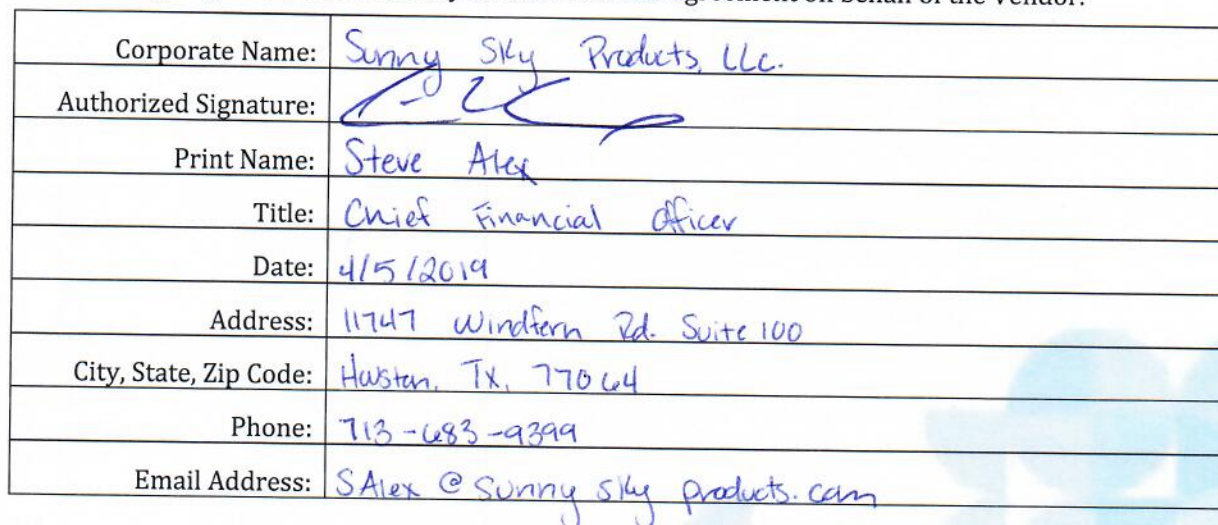 agreement on behalf of the Vendor.
Corporate Name: Sunny Sky Products, LLC.
Authorized Signature:
Print Name: Steve Alex
Title: Chief Financial Officer
Date: 4/5/2019
Address: 11747 Windfern Rd. Suite 100
City, State, Zip Code: Houston, TX, 77064
Phone: 713-683-9399
Email Address: SAlex@sunnyskyproducts.com